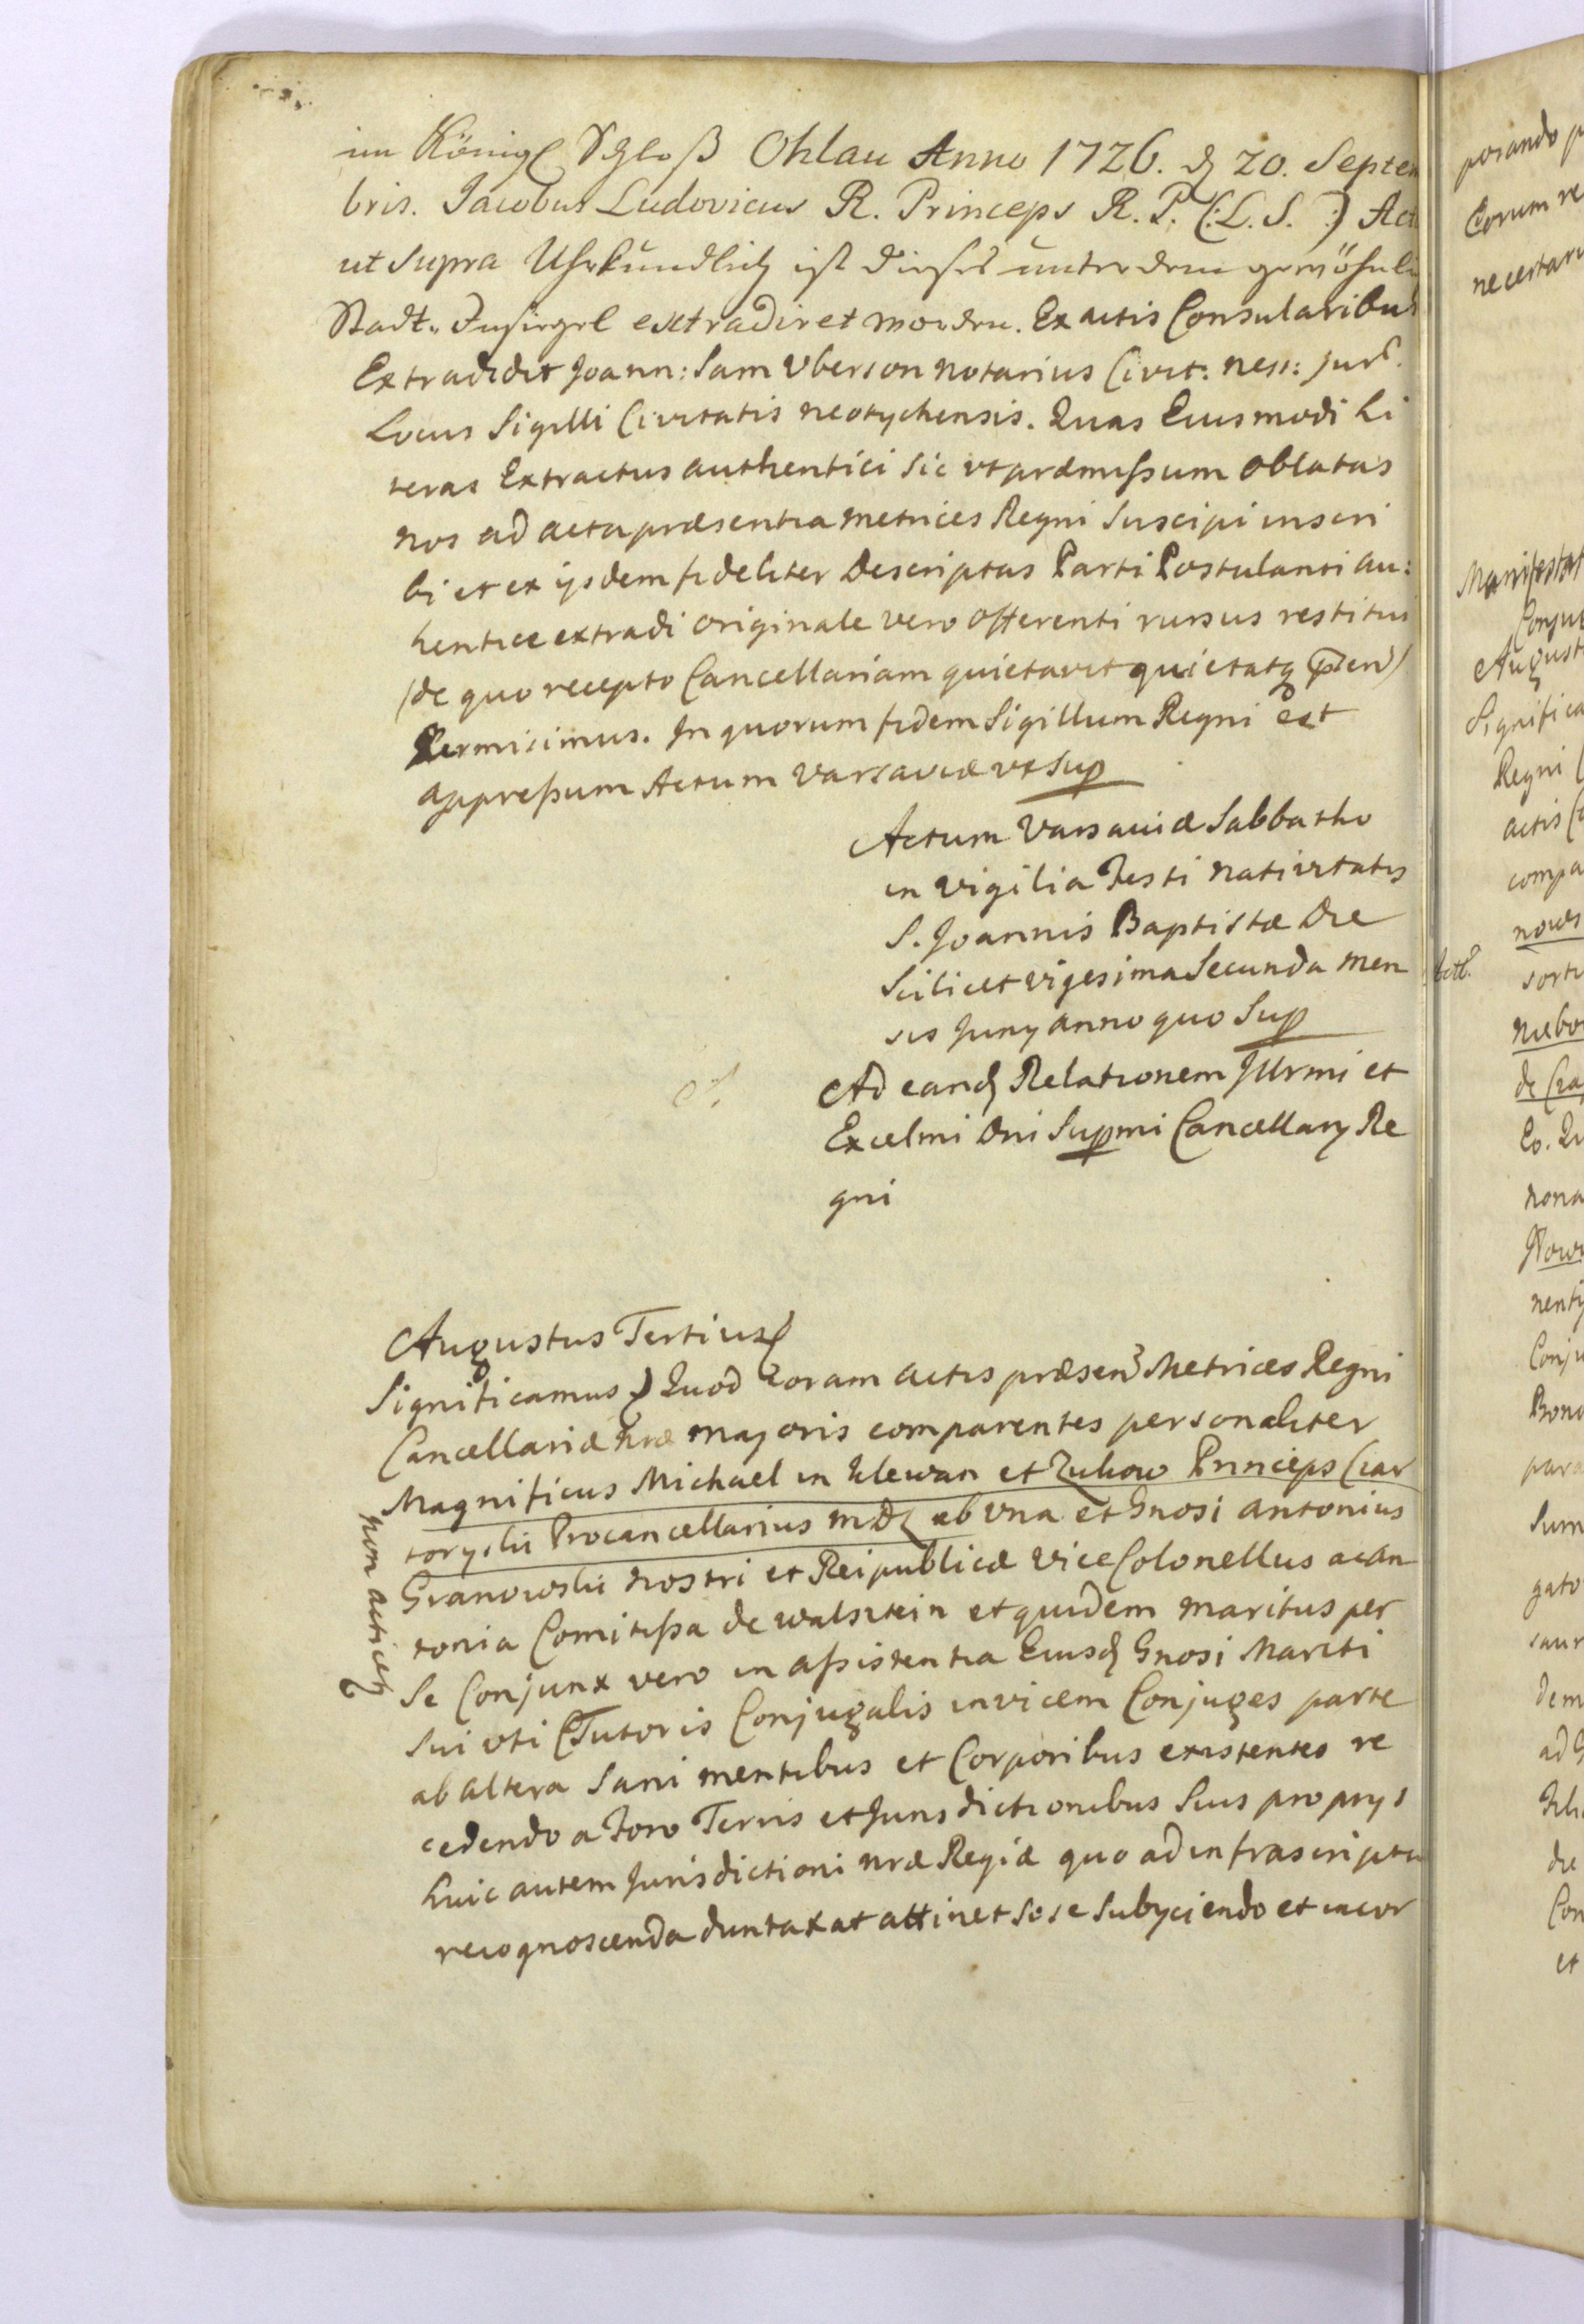 im Königl Schloß Ohlau Anno 1726. d 20. Septem
bris. Jacobus Ludovicus R. Princeps R. P. (:L. S. :) Act
ut supra Uhrkundlich ist dieses unter dem gewöhnli
Stadt-Insiegel extradiret worden. Ex actis Consularibus
Extradidit Joann: Sam Uberson notarius Civit: ness: jur.
Locus Sigilli Civitatis neotychensis. Quas Eiusmodi Li
teras Extractus authentici sic ut præmissum oblatas
nos ad acta præsentia metrices Regni suscipi inscri
bi et ex ijsdem fideliter Descriptas Parti Postulanti au:
hentice extradi originale vero offerenti rursus restitui
(de quo recepto Cancellariam quietavit quietatq pten)
Permisimus. In quorum fidem Sigillum Regni est
appressum Actum Varsaviæ ut Sup
Actum Varsaviæ Sabbatho
in vigilia Festi nativitatis
S. Joannis Baptistæ Die
Scilicet vigesima Secunda men
sis Junij anno quo Sup
Ad eand Relationem Illrmi et
Excelmi Dni Supmi Cancellarij Re
gni
Augustus Tertius
Significamus Quod coram actis præsen Metrices Regni
Cancellariæ nræ majoris comparentes personaliter
Magnificus Michael in Klewan et Zukow Princeps Czar
toryski Procancellarius MDL ab una et Gnosi Antonius
Granowski nostri et Reipublicæ vice Colonellus ac An
tonia Comitissa de Walsztein et quidem maritus per
se Conjunx vero in assistentia Eiusd Gnosi Mariti
sui uti Tutoris Conjugalis invicem Conjuges parte
ab altera Sani mentibus et Corporibus existentes re
cedendo a Foro Terris et Jurisdictionibus Suis proprijs
huic autem Jurisdictioni nræ Regiæ quo ad infrascripta
recognoscenda duntaxat attinet sese subijciendo et incor
non acticet
porando p
Eorum re
necertari
Manifestat
Conju
August
Significa
Regni
actis
compa
nowos
sorti
niebo
de Cza
Eo. Qu
nona
Nowo
nenti
Conju
Bono
para
Sum
gato
saur
dem
ad G
die
Con
et